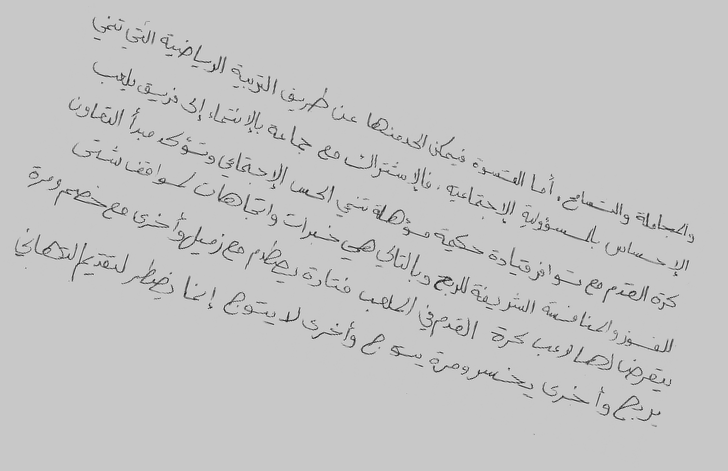 والمجاملة والتسامح، أما القسوة فيمكن الحد منها عن طريق التربية الرياضية التي تنمي
الإحساس بالمسؤولية الإجتماعية، فالإشتراك مع جماعة بالإنتماء إلى فريق يلعب
كرة القدم مع توافر قيادة حكيمة مؤهلة تنمي الحس الإجتماعي وتؤكد مبدأ التعاون
للفوز والمنافسة الشريفة للربح وبالتالي هي خبرات واتجاهات لمواقف شتى
يتعرض لها لاعب كرة القدم في الملعب فتارة يصطدم مع زميل وأخرى مع خصم ومرة
يربح وأخرى يخسر ومرة يتوج وأخرى لا يتوج إنما يضطر لتقديم التهاني